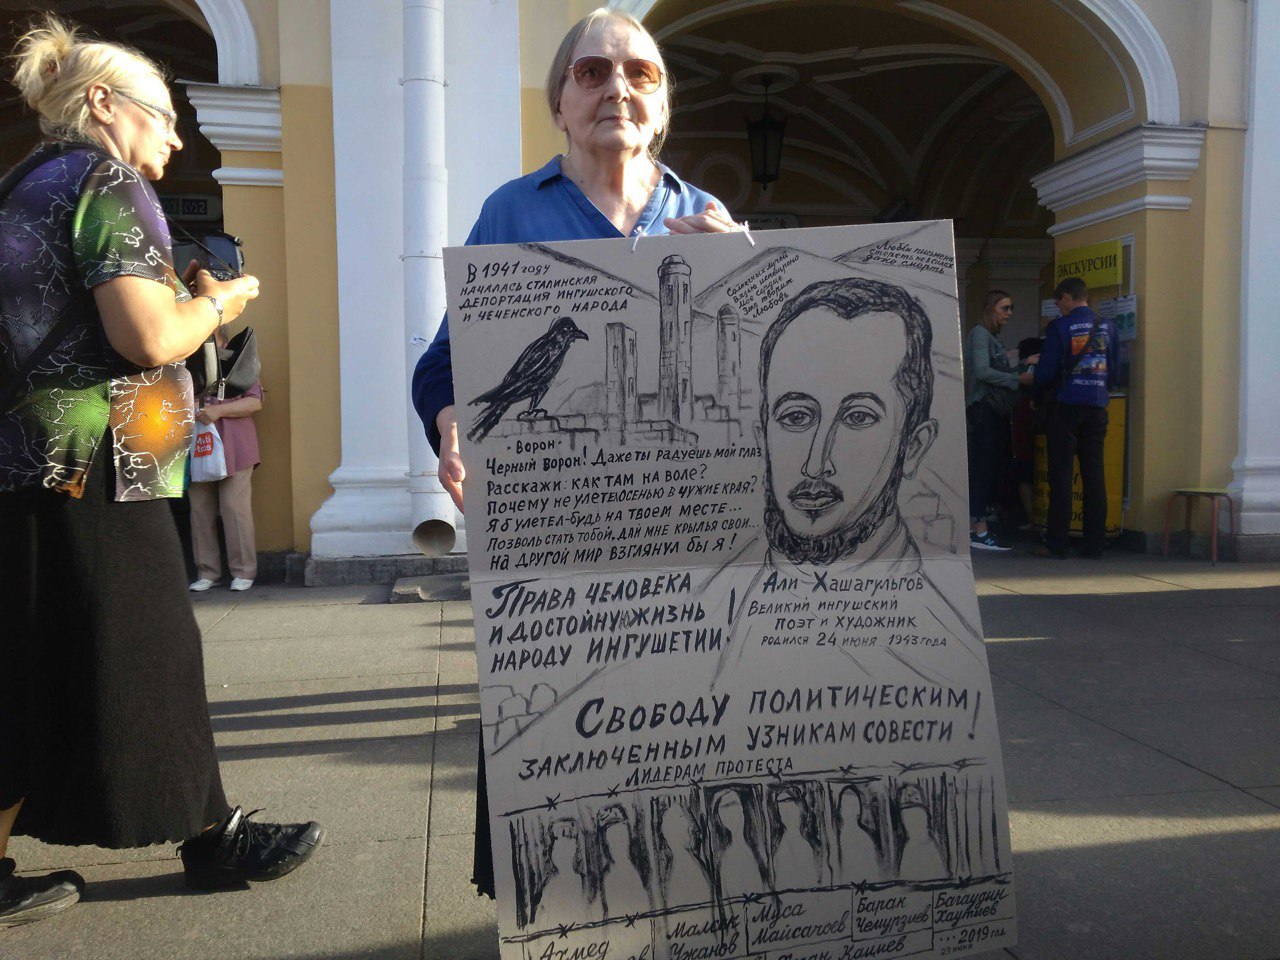 В 1941 году
началась сталинская
депортация ингушского
и чеченского народа
Солнечных лучей
Мое сердце
Это творит
Любовь
Любви
даже смерть
"Ворон"
Черный ворон! Даже ты радуешь мой глаз
Расскажи: как там на воле?
Почему не улетел осенью в чужие края?
Я б улетел - будь на твоем месте...
Позволь стать тобой, дай мне крылья свои...
На другой мир взглянул бы я!
Права человека
и достойную жизнь
народу Ингушетии!
Али Хашагульгов
Великий ингушский
поэт и художник
родился 24 июня 1943 года
Свободу политическим
заключенным узникам совести!
лидерам протеста
Ахмед
Мальсаг
Ужахов
Муса
Мальсагов
Барах
Чемурзиев
Багаудин
Хаутиев
Кациев
... 2019 год
23 июня
ЭКСКУРСИИ